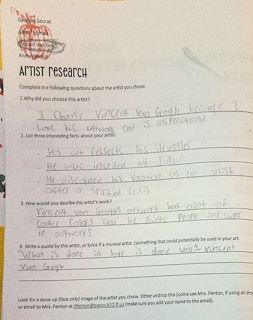 Georges Seurat
Vincent Van Gogh
Andy
ARTIST RESEARCH
Complete the following questions about the artist you chose.
1.Why did you choose this artist?
I choose Vincent van Gogh because I
Love his artwork and is inspirational
2. List three interesting facts about your artist.
- His art reflects his struggles
- He was inspired by
- He discovered his vocation as an artist
after a spiritual crisis
3. How would you describe this artist's work?
Vincent van Gogh's artwork has alot of
Colors and he Paints People and
in artworks
4. Write a quote by this artist, or lyrics if a musical artist. (something that could potentially be used in your art.
"What is done in love is done well" Vincent
Van Gogh
Look for a close up (face only) image of the artist you chose. Either airdrop this (come see Mrs. Fenton, if using air dro
or email to Mrs. Fenton at jfenton@pasco.k12.fl.us (make sure you add your name to the email).